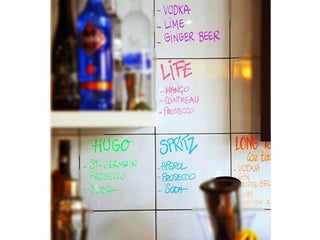 - VODKA
- LIME
- GINGER BEER
LIFE
- MANGO
- COINTREAU
- PROSECCO
HUGO
- ST-GERMAIN
- PROSECCO
- SODA
SPRITZ
- APEROL
- PROSECCO
- SODA
LONG
- VODKA
- GIN